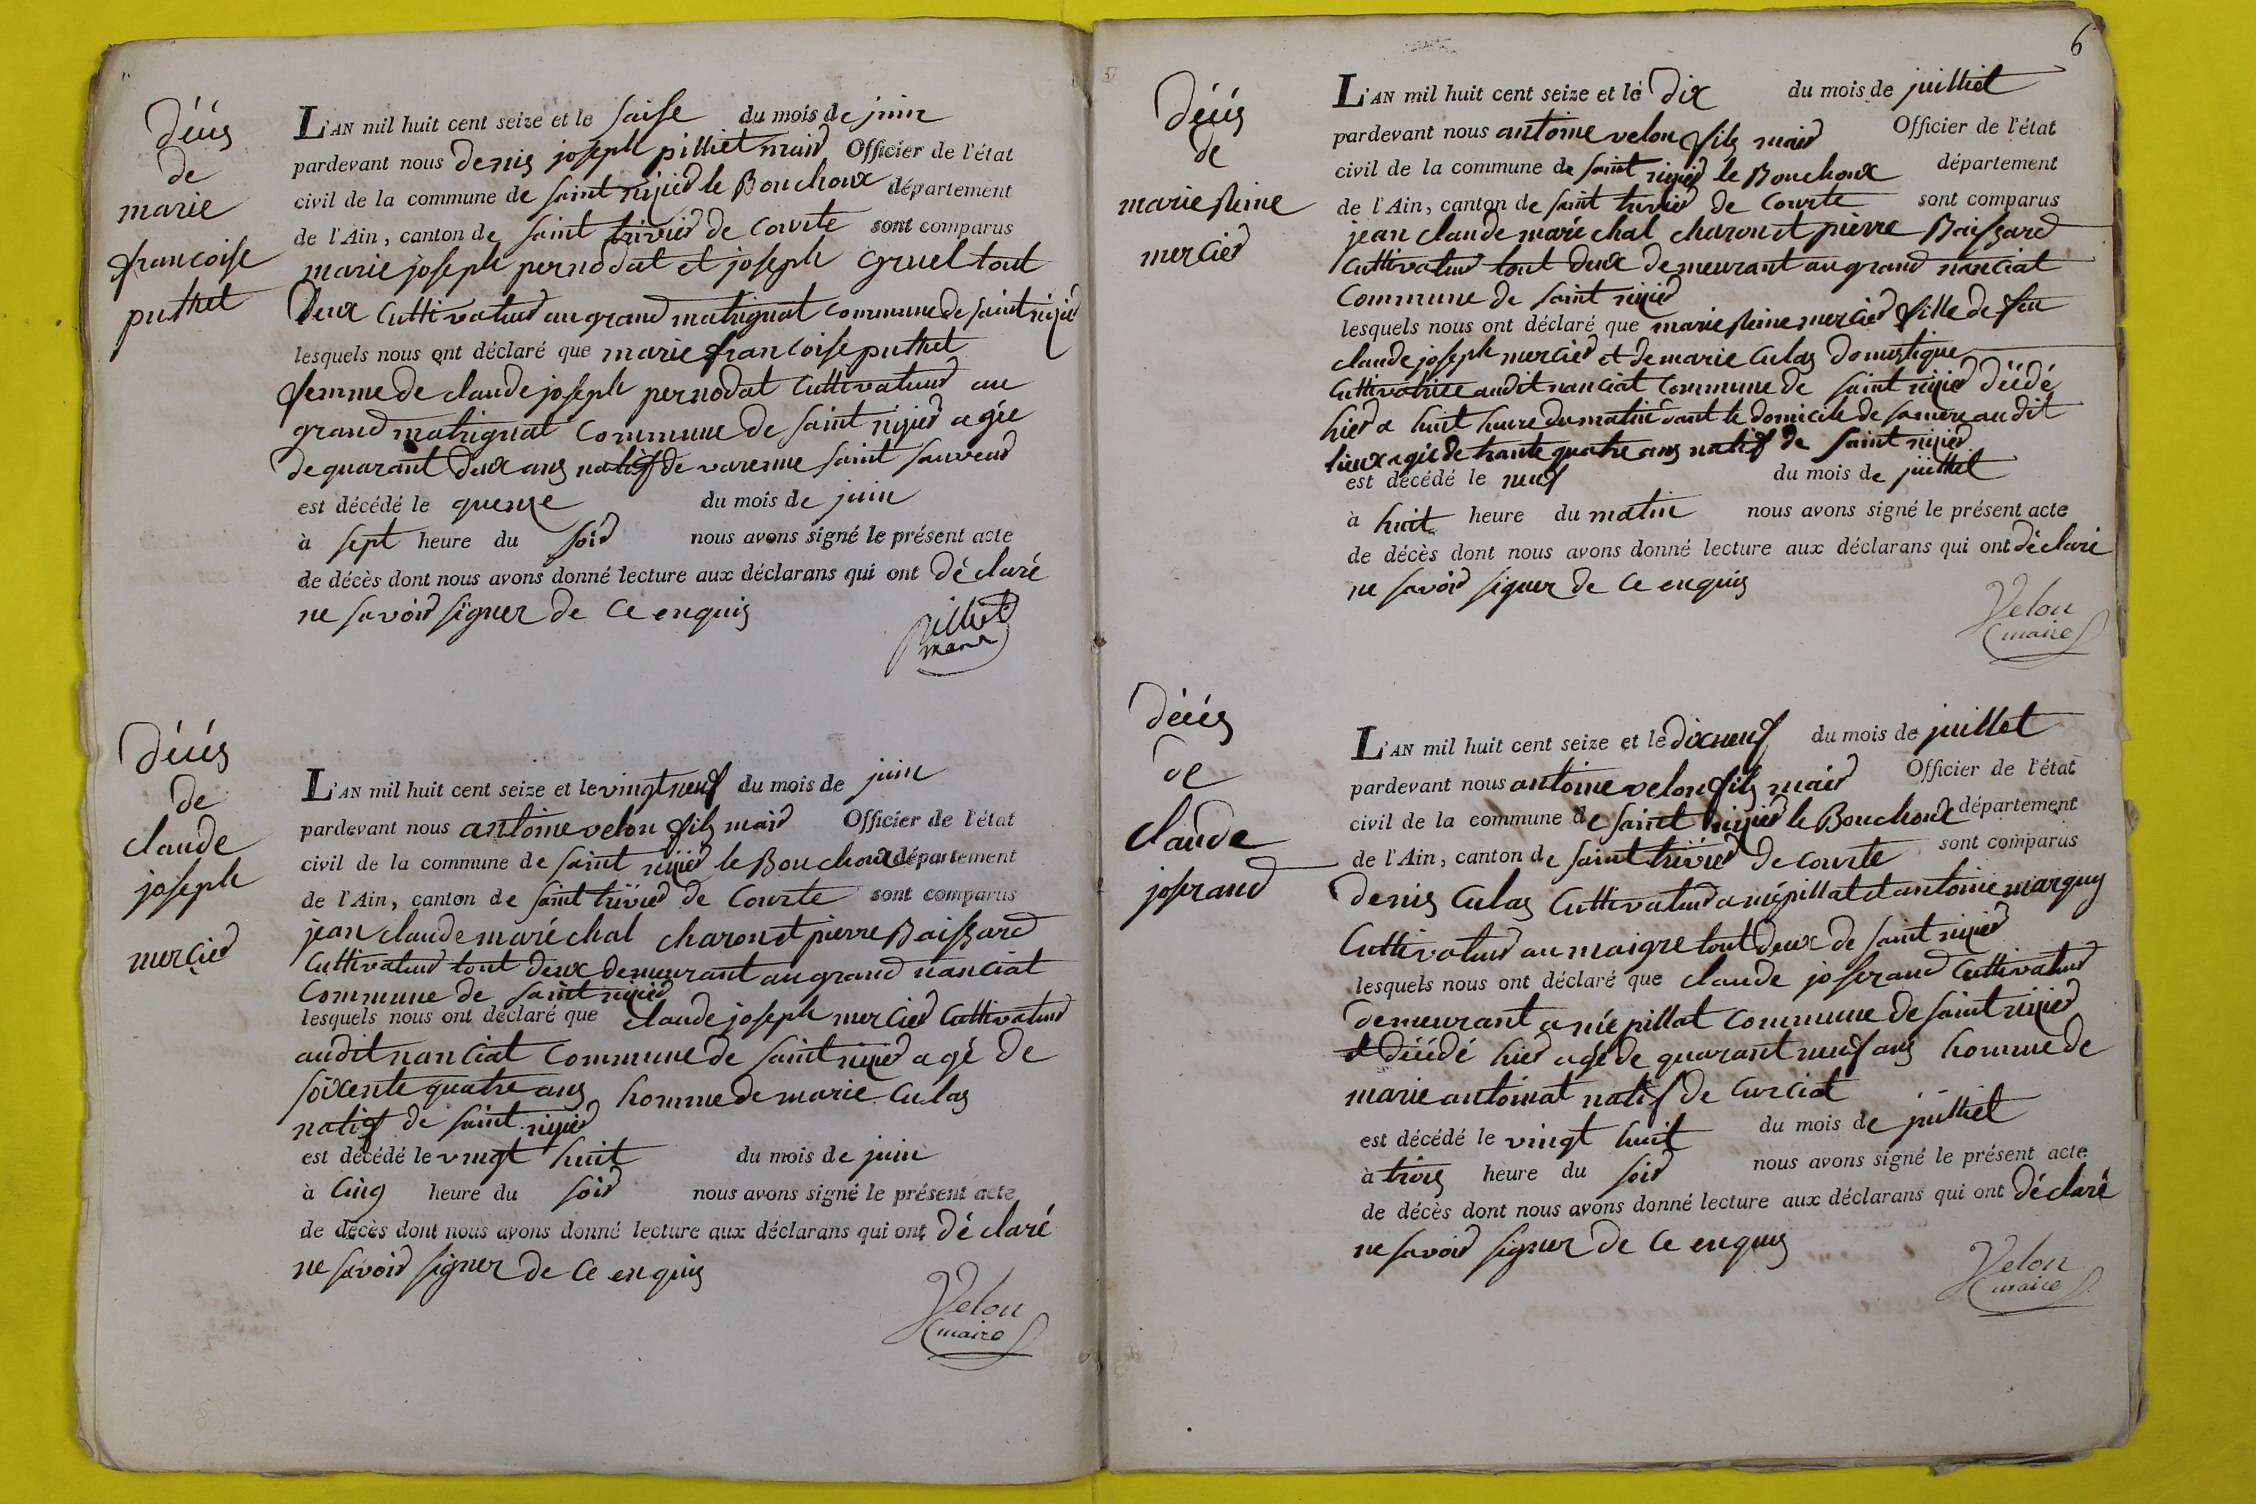 décés
de
marie
francoise
puthet
L'AN mil huit cent seize et le saise du mois de juin
pardevant nous denis joseph pilliet mair Officier de l'état
civil de la commune de saint nijier le Bouchoux département
de l'Ain, canton de saint trivier de courte sont comparus
marie joseph pernodat et joseph gruel tout
deux cuttivatuer au grand matrignat commune de saint nijier
lesquels nous ont déclaré que marie francoise puthet
femme de claude joseph pernodat cuttivatuer au
grand matrignat commune de saint nijier agée
de quarant deux ans natif de varenne saint sauveur
est décédé le quenze du mois de juin
à sept heure du soir nous avons signé le présent acte
de décès dont nous avons donné lecture aux déclarans qui ont déclaré
ne savoir signer de ce enquis
pilliet
maire
décés
de
claude
joseph
mercier
L'AN mil huit cent seize et le vingt neuf du mois de juin
pardevant nous antoine velon fils mair Officier de l'état
civil de la commune de saint nijier le Bouchoux département
de l'Ain, canton de saint trivier de courte sont comparus
jean claude maréchal charon et pierre Baissard
cuttivatuer tout deux demeurant au grand nanciat
commune de saint nijier
lesquels nous ont déclaré que claude joseph mercier cuttivatuer
audit nanciat commune de saint nijier agé de
soixente quatre ans homme de marie culas
natif de saint nijier
est décédé le vingt huit du mois de juin
à cinq heure du soir nous avons signé le présent acte
de décès dont nous avons donné lecture aux déclarans qui ont déclaré
ne savoir signer de ce enquis
Velon
maire
6
décés
de
marie reine
mercier
L'AN mil huit cent seize et le dix du mois de juilliet
pardevant nous antoine velon fils mair Officier de l'état
civil de la commune de saint nijier le Bouchoux département
de l'Ain, canton de saint trivier de courte sont comparus
jean claude maréchal charon et pierre Baissard
cuttivatuer tout deux demeurant au grand nanciat
commune de saint nijier
lesquels nous ont déclaré que marie reine mercier fille de feu
claude joseph mercier et de marie culas domestique
cuttivatrice audit nanciat commune de saint nijier décédé
hier a huit heure du matin dant le domicile de sa mere au dit
lieux agée de trante quatre ans natif de saint nijier
est décédé le neuf du mois de juilliet
à huit heure du matin nous avons signé le présent acte
de décès dont nous avons donné lecture aux déclarans qui ont déclaré
ne savoir signer de ce enquis
Velon
maire
décés
de
claude
joserand
L'AN mil huit cent seize et le dix neuf du mois de juillet
pardevant nous antoine velon fils mair Officier de l'état
civil de la commune de saint nijier le Bouchoux département
de l'Ain, canton de saint trivier de courte sont comparus
denis culas cuttivatuer a niépillat et antoine marguy
cuttivatuer au maigre tout deux de saint nijier
lesquels nous ont déclaré que claude joserand cuttivatuer
demeurant a niépillat commune de saint nijier
et décédé hier agé de quarant neuf ans homme de
marie antoinat natif de curciat
est décédé le vingt huit du mois de juilliet
à trois heure du soir nous avons signé le présent acte
de décès dont nous avons donné lecture aux déclarans qui ont déclaré
ne savoir signer de ce enquis
Velon
maire